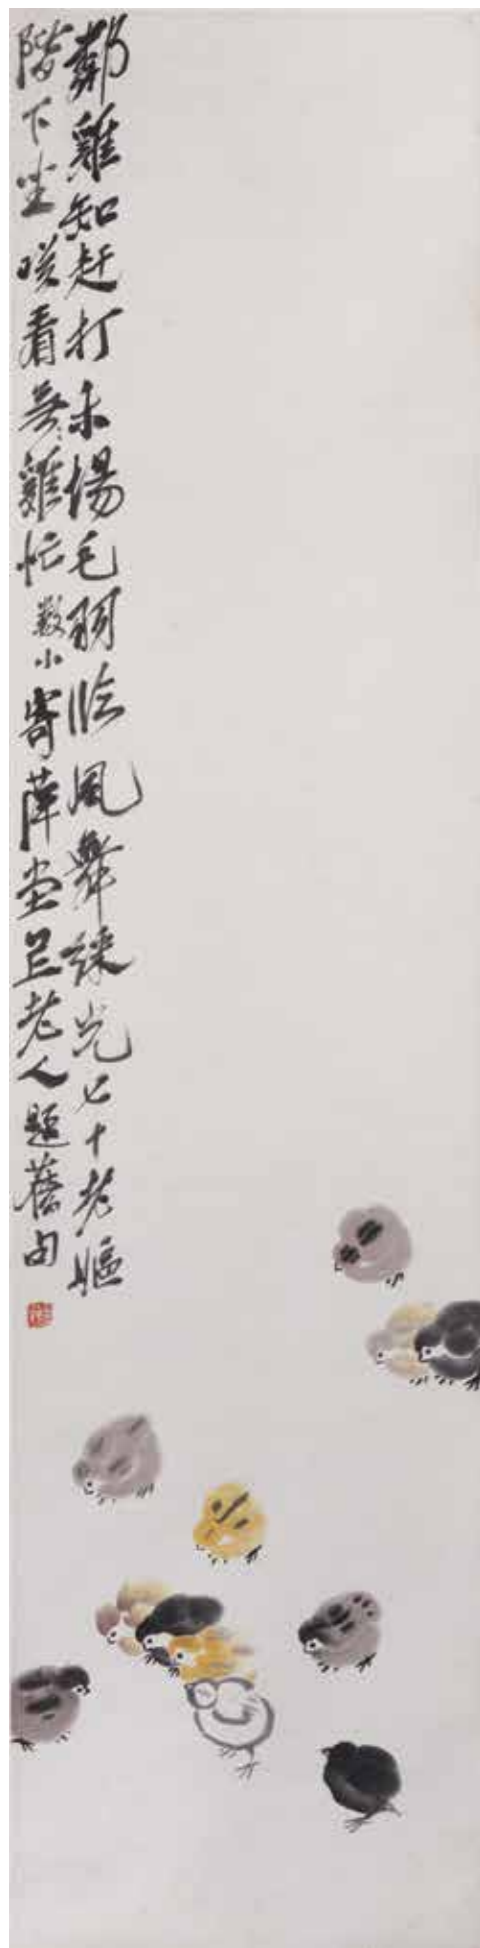 鄰雞知趕打禾場毛羽臨風舞綵光七十老嫗
階下坐咲看無雞忙數小寄萍堂上老人題舊句